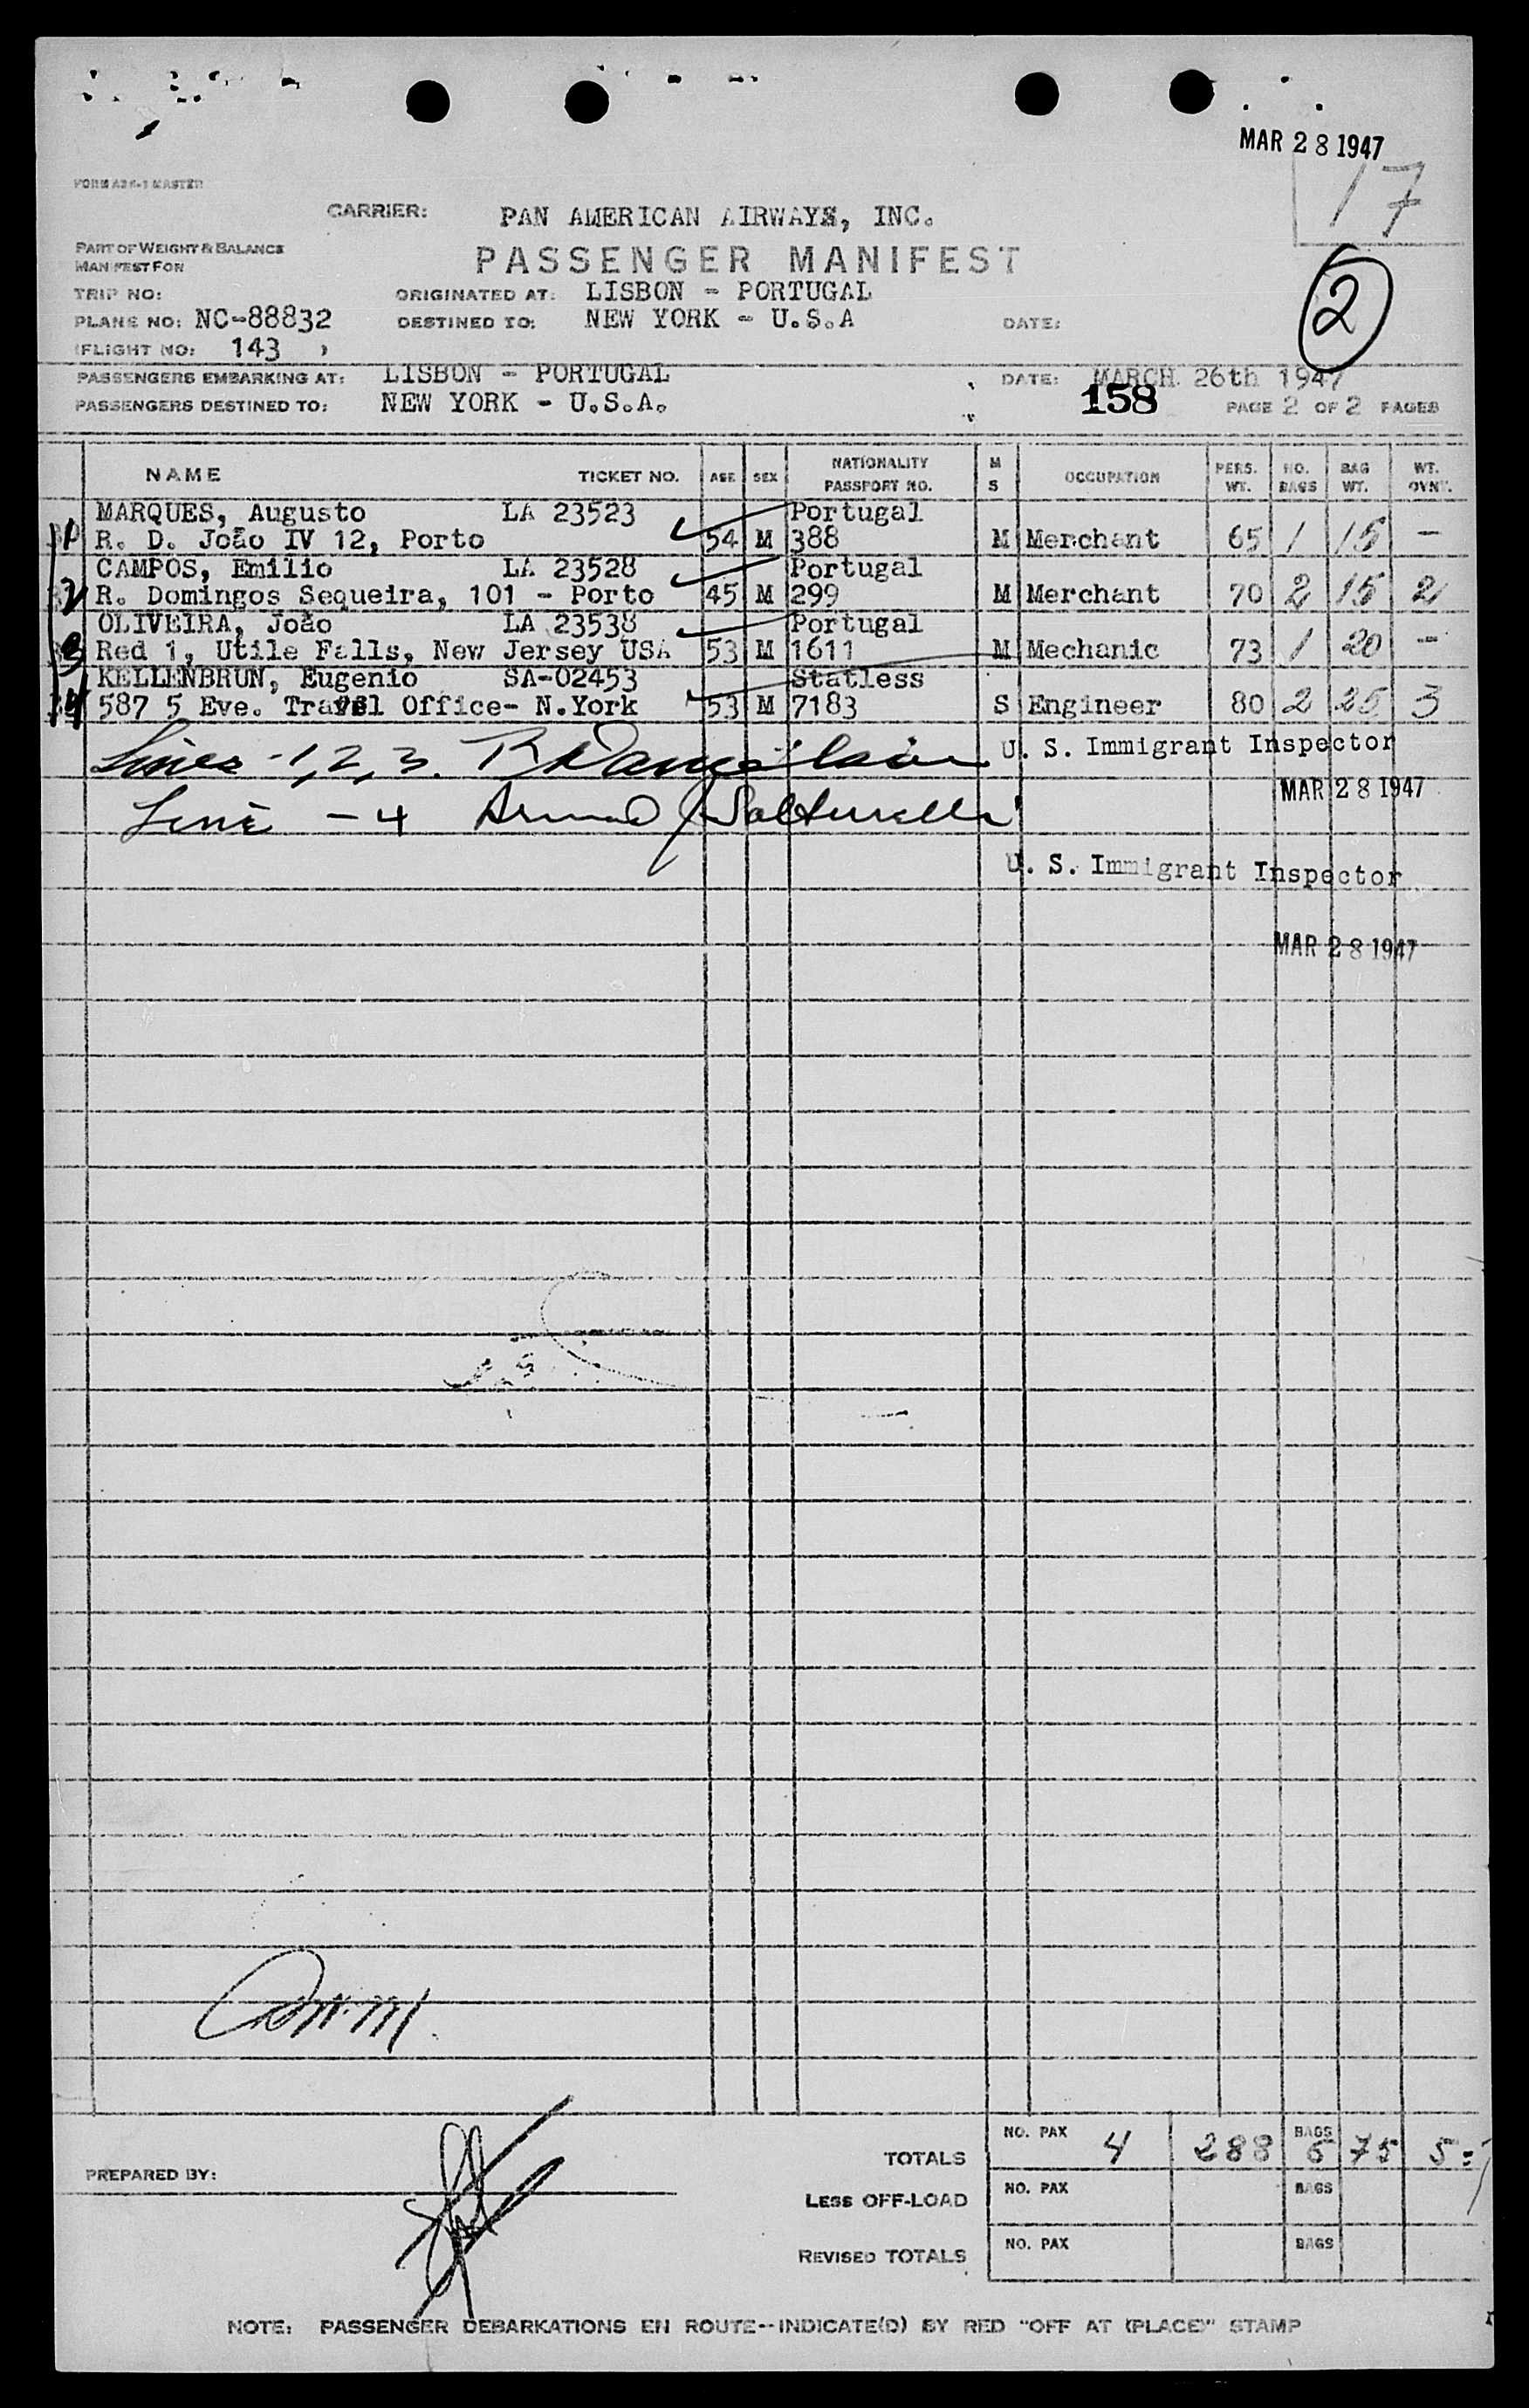 MAR 28 1947
17
CARRIER: PAN AMERICAN AIRWAYS, INC.
PART OF WEIGHT & BALANCE
MANIFEST FOR
PASSENGER MANIFEST
2
TRIP NO: ORIGINATED AT: LISBON - PORTUGAL
PLANE NO: NC-88832 DESTINED TO: NEW YORK - U.S.A DATE:
(FLIGHT NO: 143 )
PASSENGERS EMBARKING AT: LISBON - PORTUGAL DATE: MARCH 26th 1947
PASSENGERS DESTINED TO: NEW YORK - U.S.A. 158 PAGE 2 OF 2 PAGES
NAME TICKET NO. AGE SEX NATIONALITY PASSPORT NO. M S OCCUPATION PERS. WT. NO. BAGS BAG WT. WT. OVNT.
MARQUES, Augusto LA 23523 Portugal
1 R. D. João IV 12, Porto 54 M 388 M Merchant 65 1 15 -
CAMPOS, Emilio LA 23528 Portugal
2 R. Domingos Sequeira, 101 - Porto 45 M 299 M Merchant 70 2 15 2
OLIVEIRA, João LA 23538 Portugal
3 Red 1, Utile Falls, New Jersey USA 53 M 1611 M Mechanic 73 1 20 -
KELLENBRUN, Eugenio SA-02453 Statless
4 587 5 Eve. Travel Office- N.York 53 M 7183 S Engineer 80 2 25 3
Lines -1,2,3. U. S. Immigrant Inspector
MAR 28 1947
Line - 4
U. S. Immigrant Inspector
MAR 28 1947
TOTALS NO. PAX 4 288 BAGS 6 75 5
PREPARED BY:
LESS OFF-LOAD NO. PAX BAGS
REVISED TOTALS NO. PAX BAGS
NOTE: PASSENGER DEBARKATIONS EN ROUTE--INDICATE(D) BY RED "OFF AT (PLACE)" STAMP